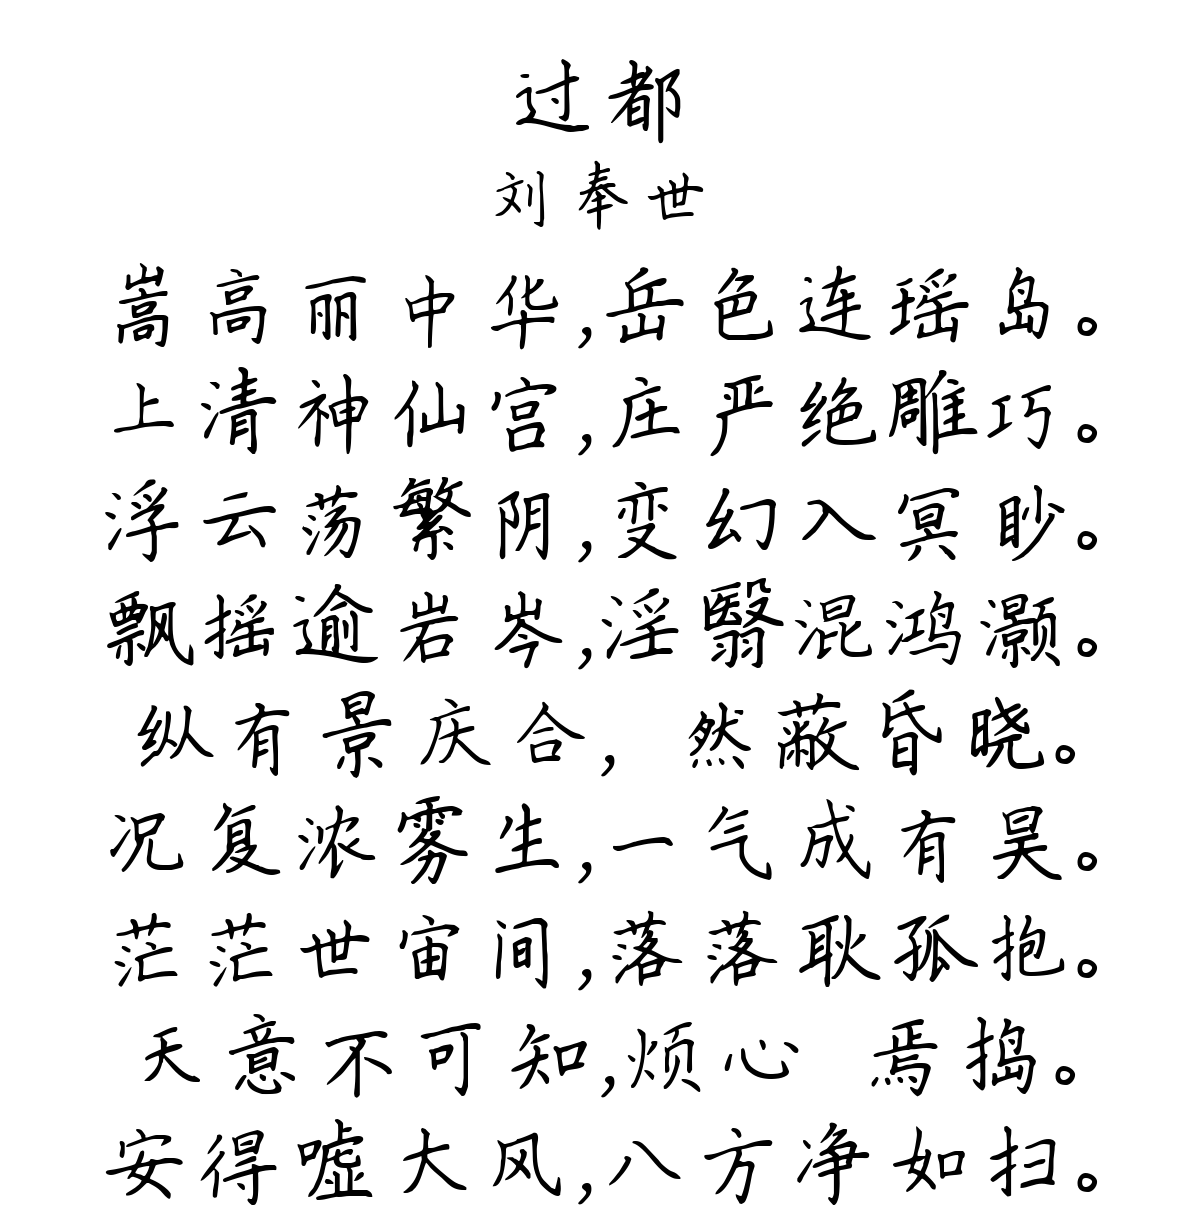 过都
刘奉世
嵩高丽中华,岳色连瑶岛。
上清神仙宫,庄严绝雕巧。
浮云荡繁阴,变幻入冥眇。
飘摇逾岩岑,淫翳混鸿灏。
纵有景庆合, 然蔽昏晓。
况复浓雾生,一气成有昊。
茫茫世宙间,落落耿孤抱。
天意不可知,烦心 焉捣。
安得嘘大风,八方净如扫。